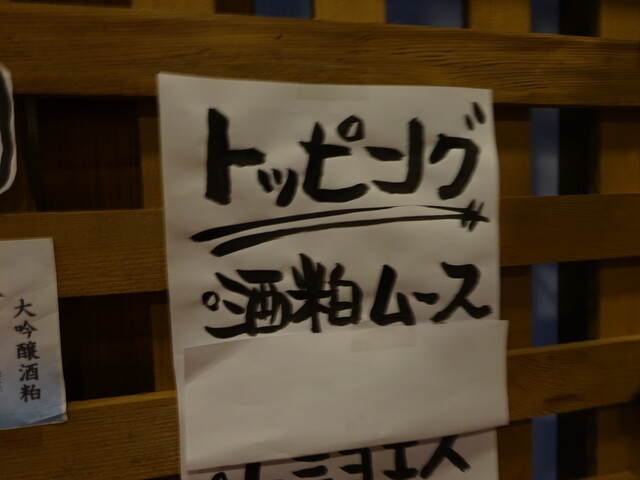 トッピング
。酒粕ムース
大吟醸酒粕